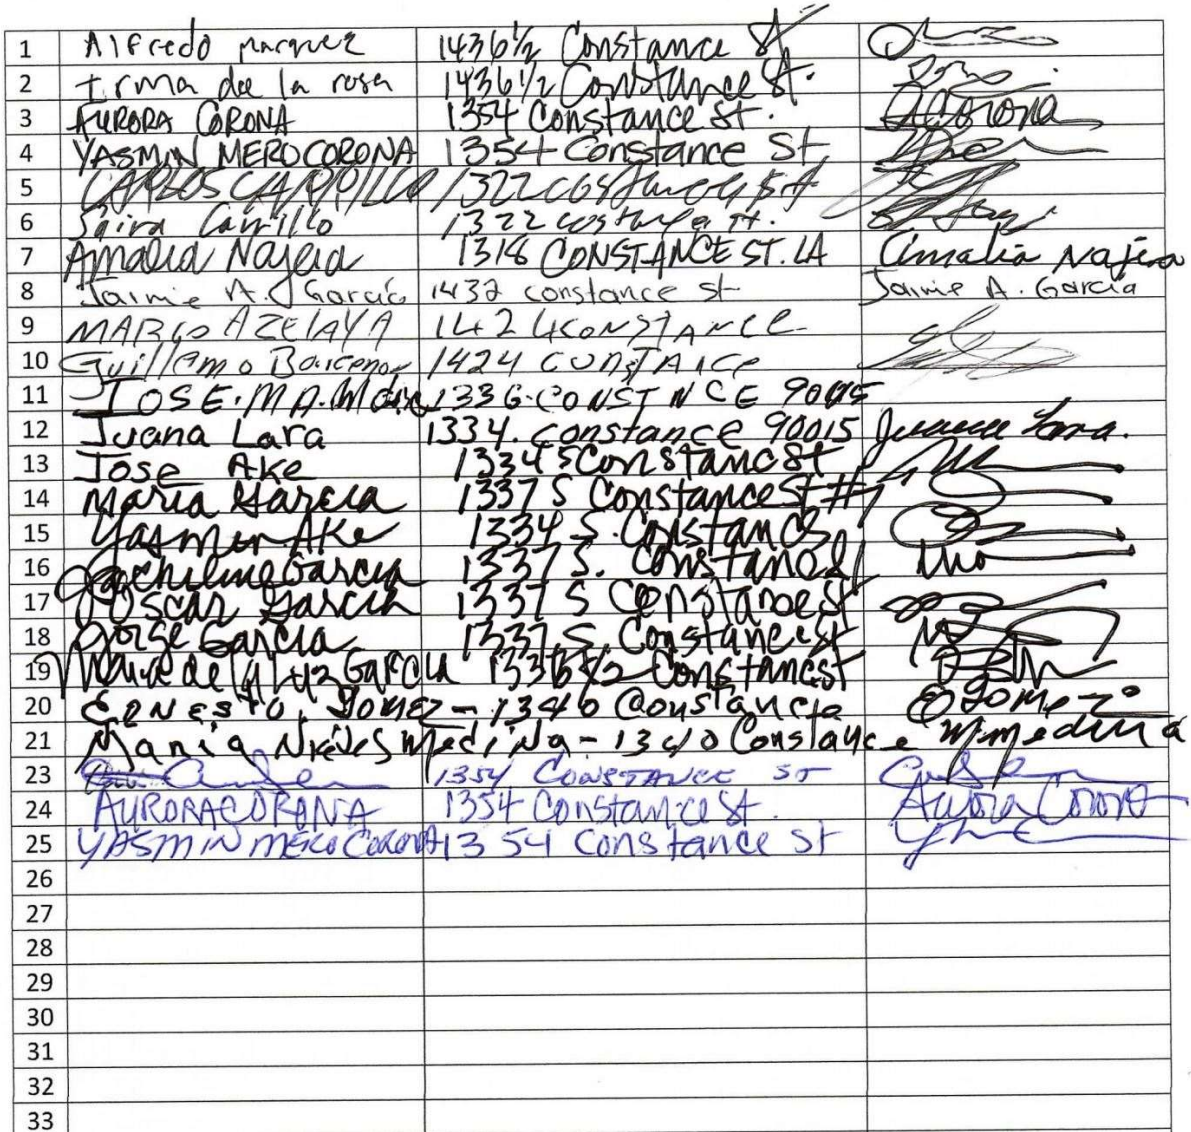 1 Alfredo marquez 1436½ Constance St
2 Irma de la rosa 1436½ Constance St.
3 AURORA CORONA 1354 Constance St. A Corona
4 YASMIN MERO CORONA 1354 Constance St
5 CARLOS CARRILLO 1322
6 Saira Carrillo 1322 st.
7 Amalia Najera 1318 CONSTANCE ST. LA Amalia Najera
8 Jaime A. Garcia 1432 constance st Jaime A. Garcia
9 MARCO A ZELAYA 1424 CONSTANCE
10 Guillermo 1424 CONSTANCE
11 JOSE. MA. 1336 CONSTNCE 90015
12 Juana Lara 1334. constance 90015 Juana Lara.
13 Jose Ake 1334 S Constanc St
14 Maria Garcia 1337 S Constance St #
15 Yasmin Ake 1334 S. Constance
16 Garcia 1337 S.
17 Oscar Garcia 1337 S Constance St
18 Jorge Garcia 1337 S. Constance st
19 de la Luz Garcia 1336 1/2 Constancest
20 ERNESTO. GOMEZ - 1340 Constance E Gomez
21 Maria Nieves Medina - 1340 Constance M medina
23 1354 CONSTANCE ST
24 AURORA CORONA 1354 Constance St. Aurora Corona
25 YASMIN MERO CORONA 1354 Constance St
26
27
28
29
30
31
32
33